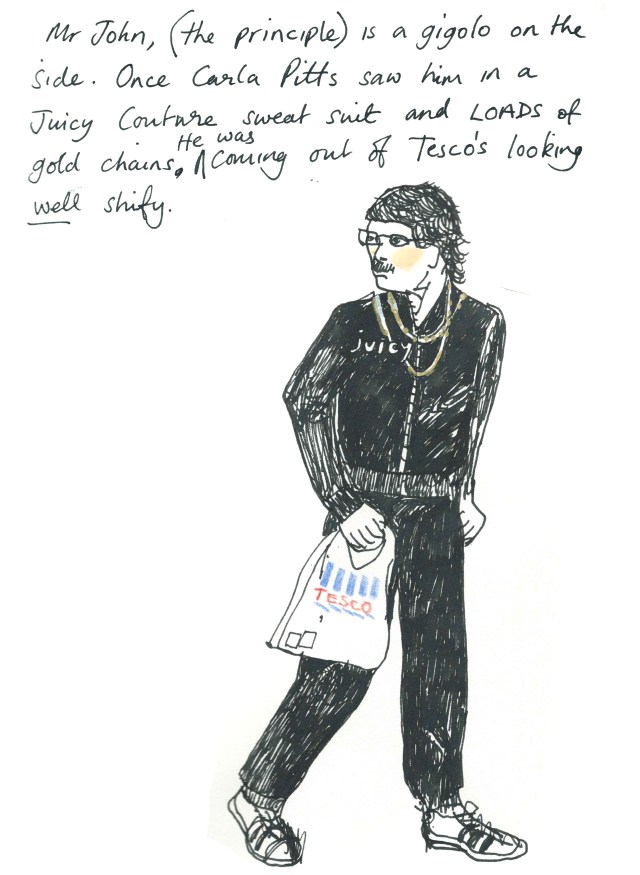 Mr John, (the principle) is a gigolo on the
side. Once Carla Pitts saw him in a
Juicy Couture sweat suit and LOADS of
gold chains, He was coming out of Tesco's looking
well shify.
juicy
TESCO